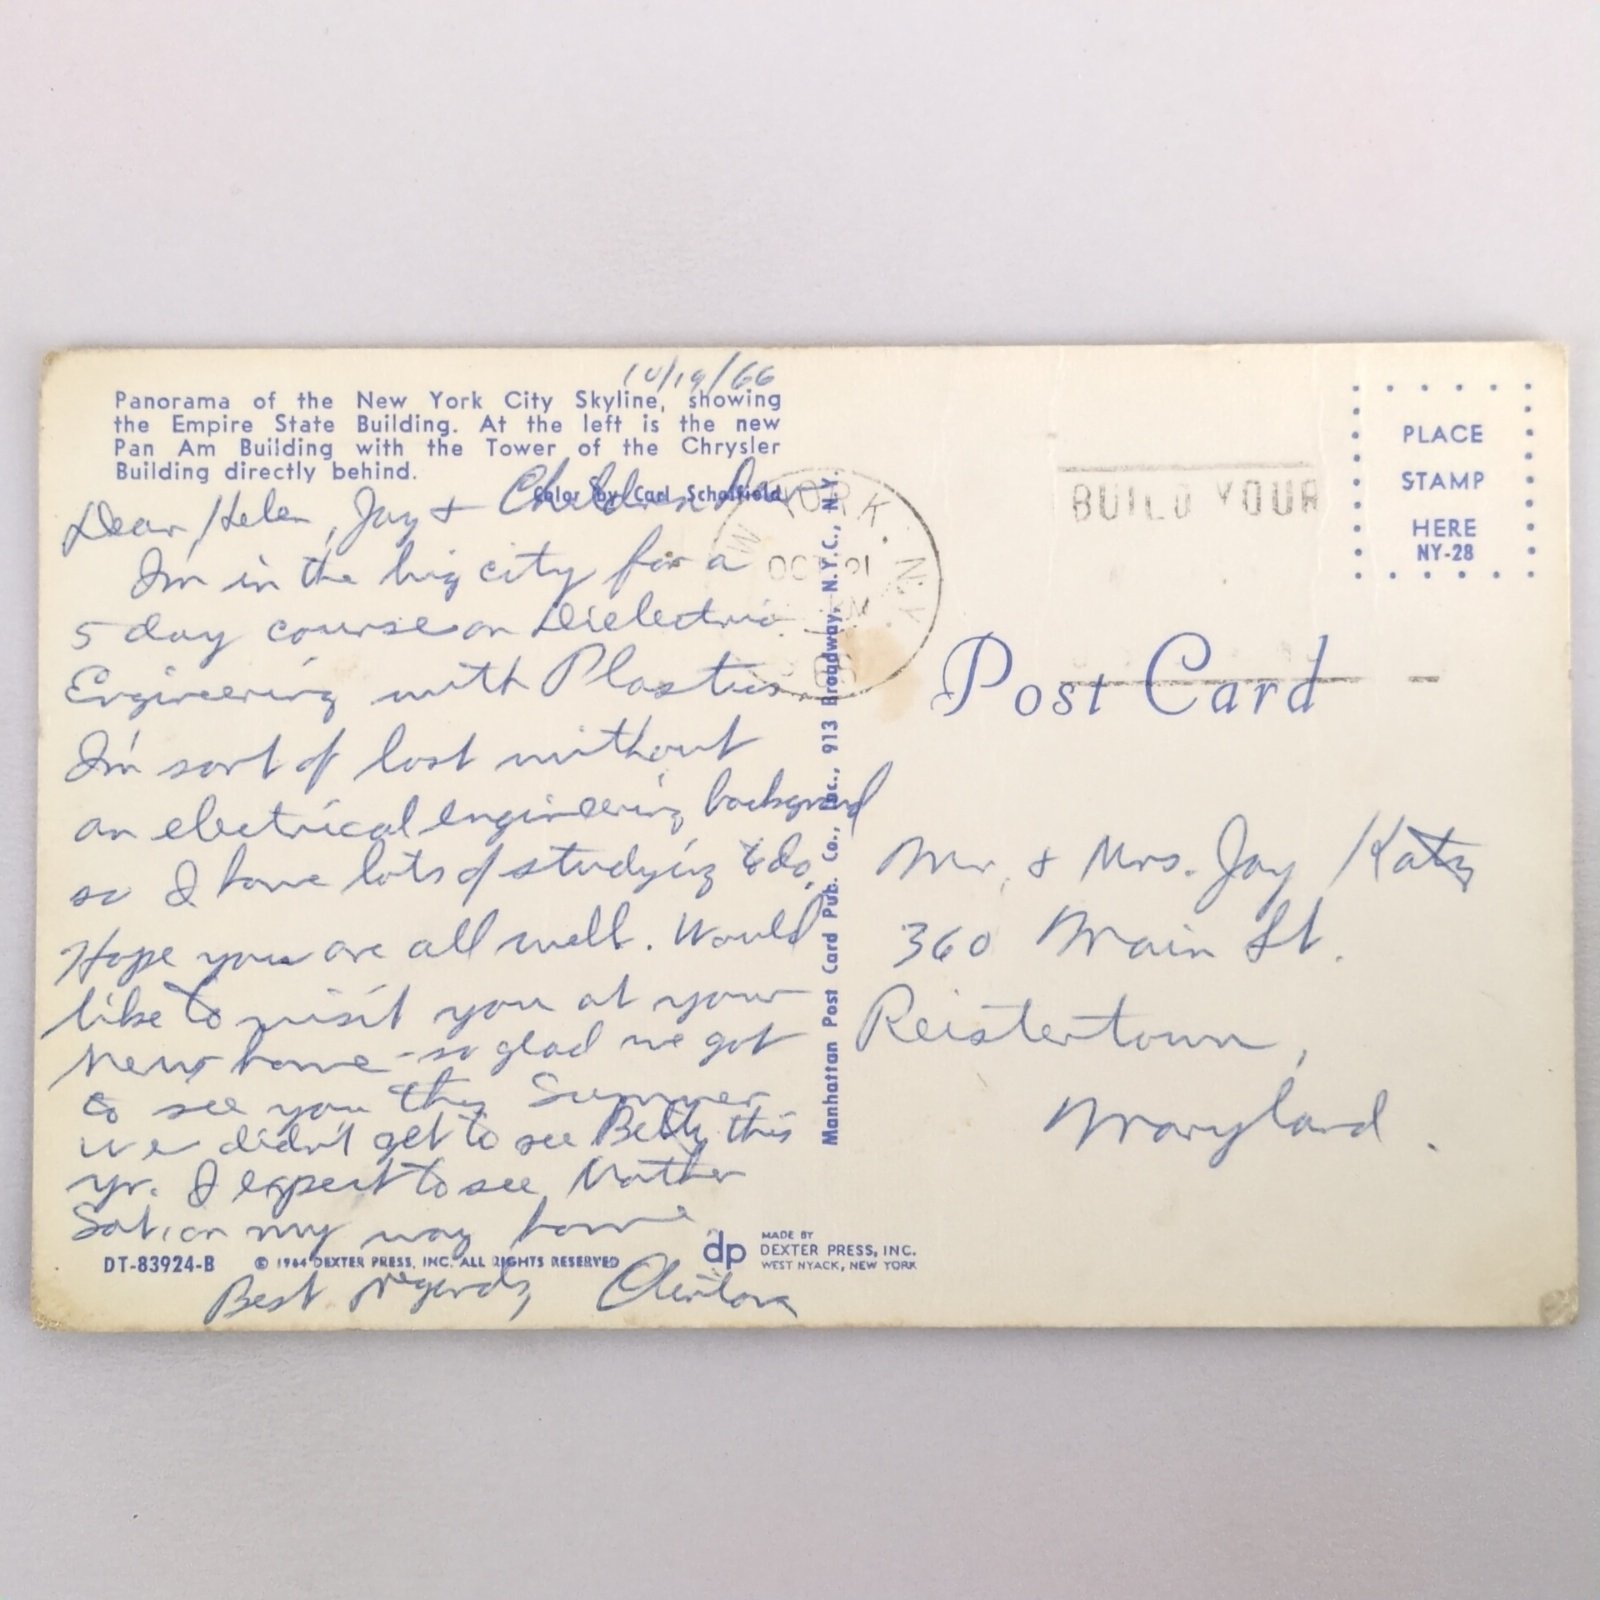 10/19/66
Panorama of the New York City Skyline, showing
the Empire State Building. At the left is the new
Pan Am Building with the Tower of the Chrysler
Building directly behind.
Color by Carl Scholfield
Dear Helen, Jay + Children
I'm in the big city for a
5 day course on Dielectric
Engineering with Plastics.
I'm sort of lost without
an electrical engineering background
so I have lots of studying to do.
Hope you are all well. Would
like to visit you at your
new home - so glad we got
to see you this Summer
we didn't get to see Betty this
yr. I expect to see Mother
Sat. on my way home
Best regards,
DT-83924-B
© 1964 DEXTER PRESS, INC. ALL RIGHTS RESERVED
dp
MADE BY
DEXTER PRESS, INC.
WEST NYACK, NEW YORK
Manhattan Post Card Pub. Co., Inc., 913 Broadway, N.Y.C., N.Y.
YORK, N.Y.
OCT 21
BUILD YOUR
PLACE
STAMP
HERE
NY-28
Post Card
Mr. & Mrs. Jay Katz
360 Main St.
Reistertown,
Maryland.